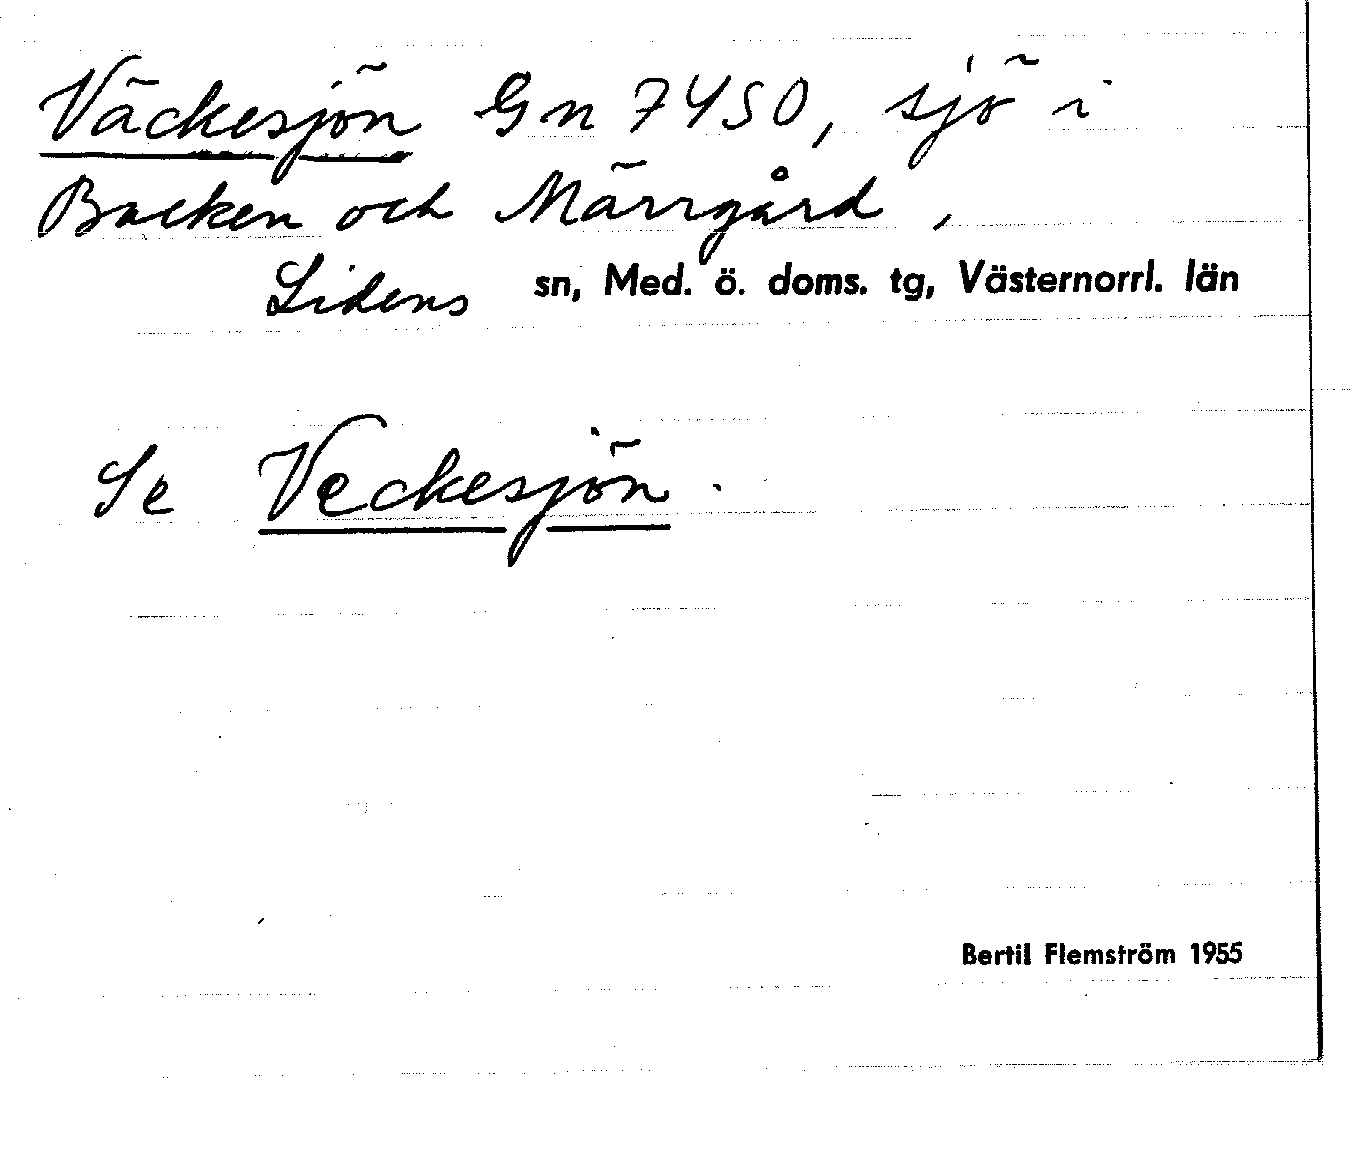 Väckesjön Gn 7450, sjö i
Backen och Märrgård,
Lidens sn, Med. ö. doms. tg, Västernorrl. län
Se Veckesjön.
Bertil Flemström 1955